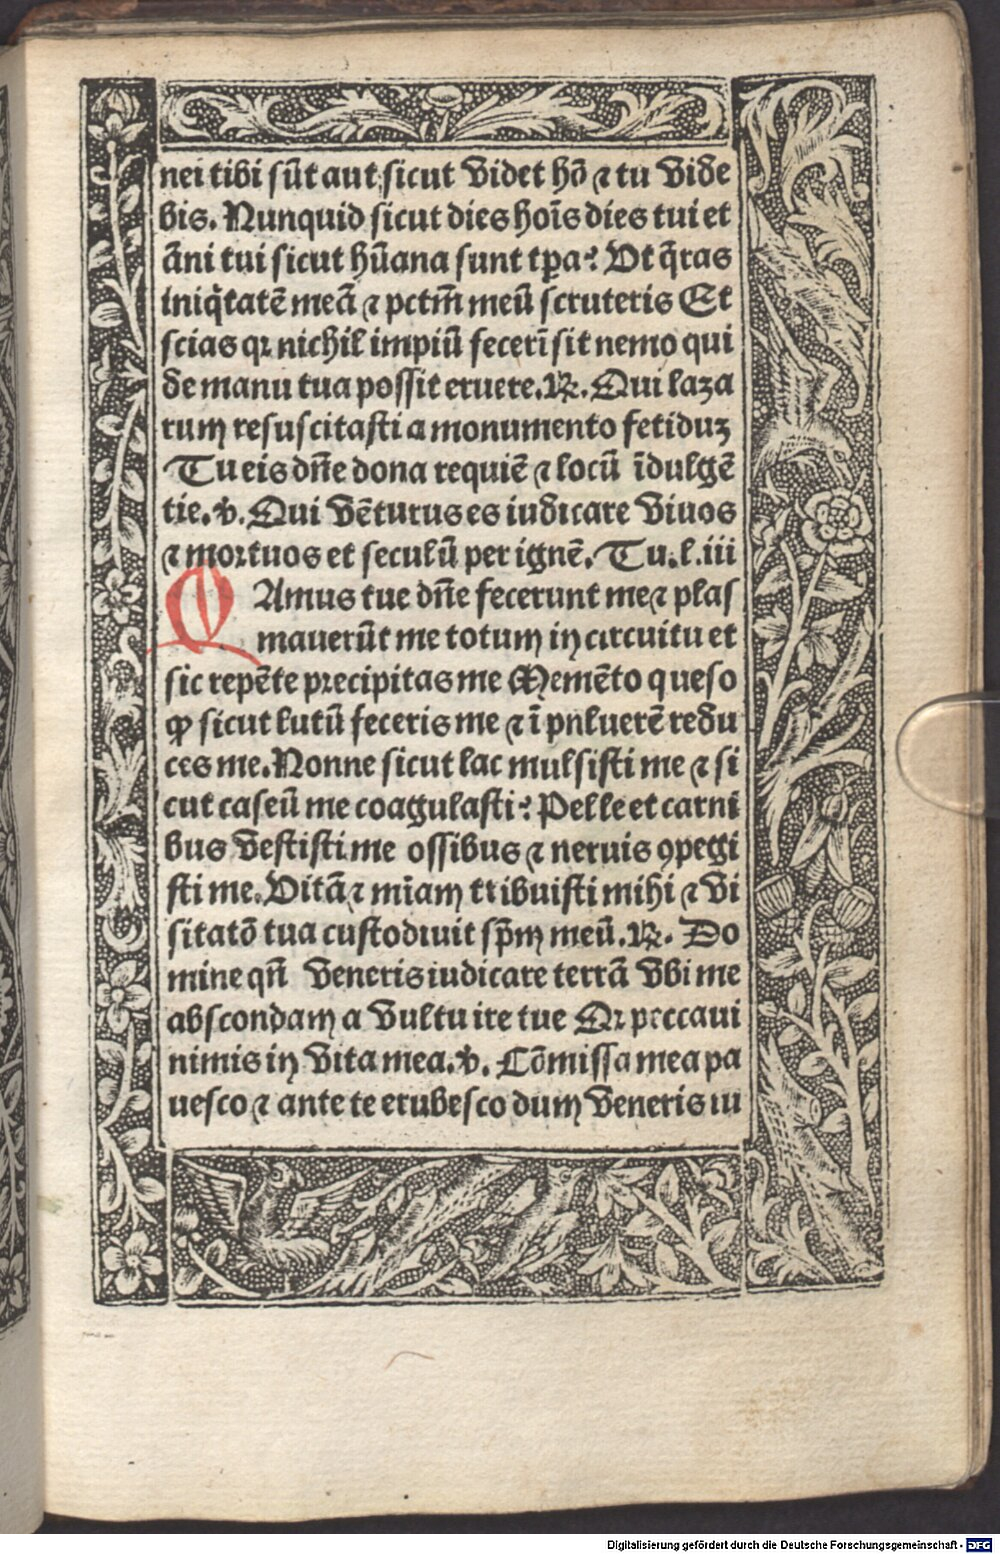 nei tibi sūt aut sicut videt hō ⁊ tu vide
bis. Nunquid sicut dies hoīs dies tui et
āni tui sicut hūana sunt tꝑa? Vt q̄ras
iniq̄tatē meā ⁊ pctm̄ meū scruteris Et
scias qꝛ nichil impiū fecerī sit nemo qui
de manu tua possit eruere. ℟. Qui laza
rum resuscitasti a monumento fetiduꝫ
Tu eis dn̄e dona requiē ⁊ locū īdulgē
tie. ℣. Qui vēturus es iudicare viuos
⁊ mortuos et seculū per ignē. Tu. l. iii
MAmus tue dn̄e fecerunt me ⁊ plas
mauerūt me totum in circuitu et
sic repēte precipitas me Memēto queso
ꝙ sicut lutū feceris me ⁊ ī pnluerē redu
ces me. Nonne sicut lac mulsisti me ⁊ si
cut caseū me coagulasti? Pelle et carni
bus vestisti me ossibus ⁊ neruis ꝯpegi
sti me. Vitā ⁊ mīam tribuisti mihi ⁊ vi
sitatō tua custodiuit spm̄ meū. ℟. Do
mine qn̄ veneris iudicare terrā vbi me
abscondam a vultu ire tue Qꝛ peccaui
nimis in vita mea. ℣. Cōmissa mea pa
uesco ⁊ ante te erubesco dum veneris iu
Digitalisierung gefördert durch die Deutsche Forschungsgemeinschaft - DFG